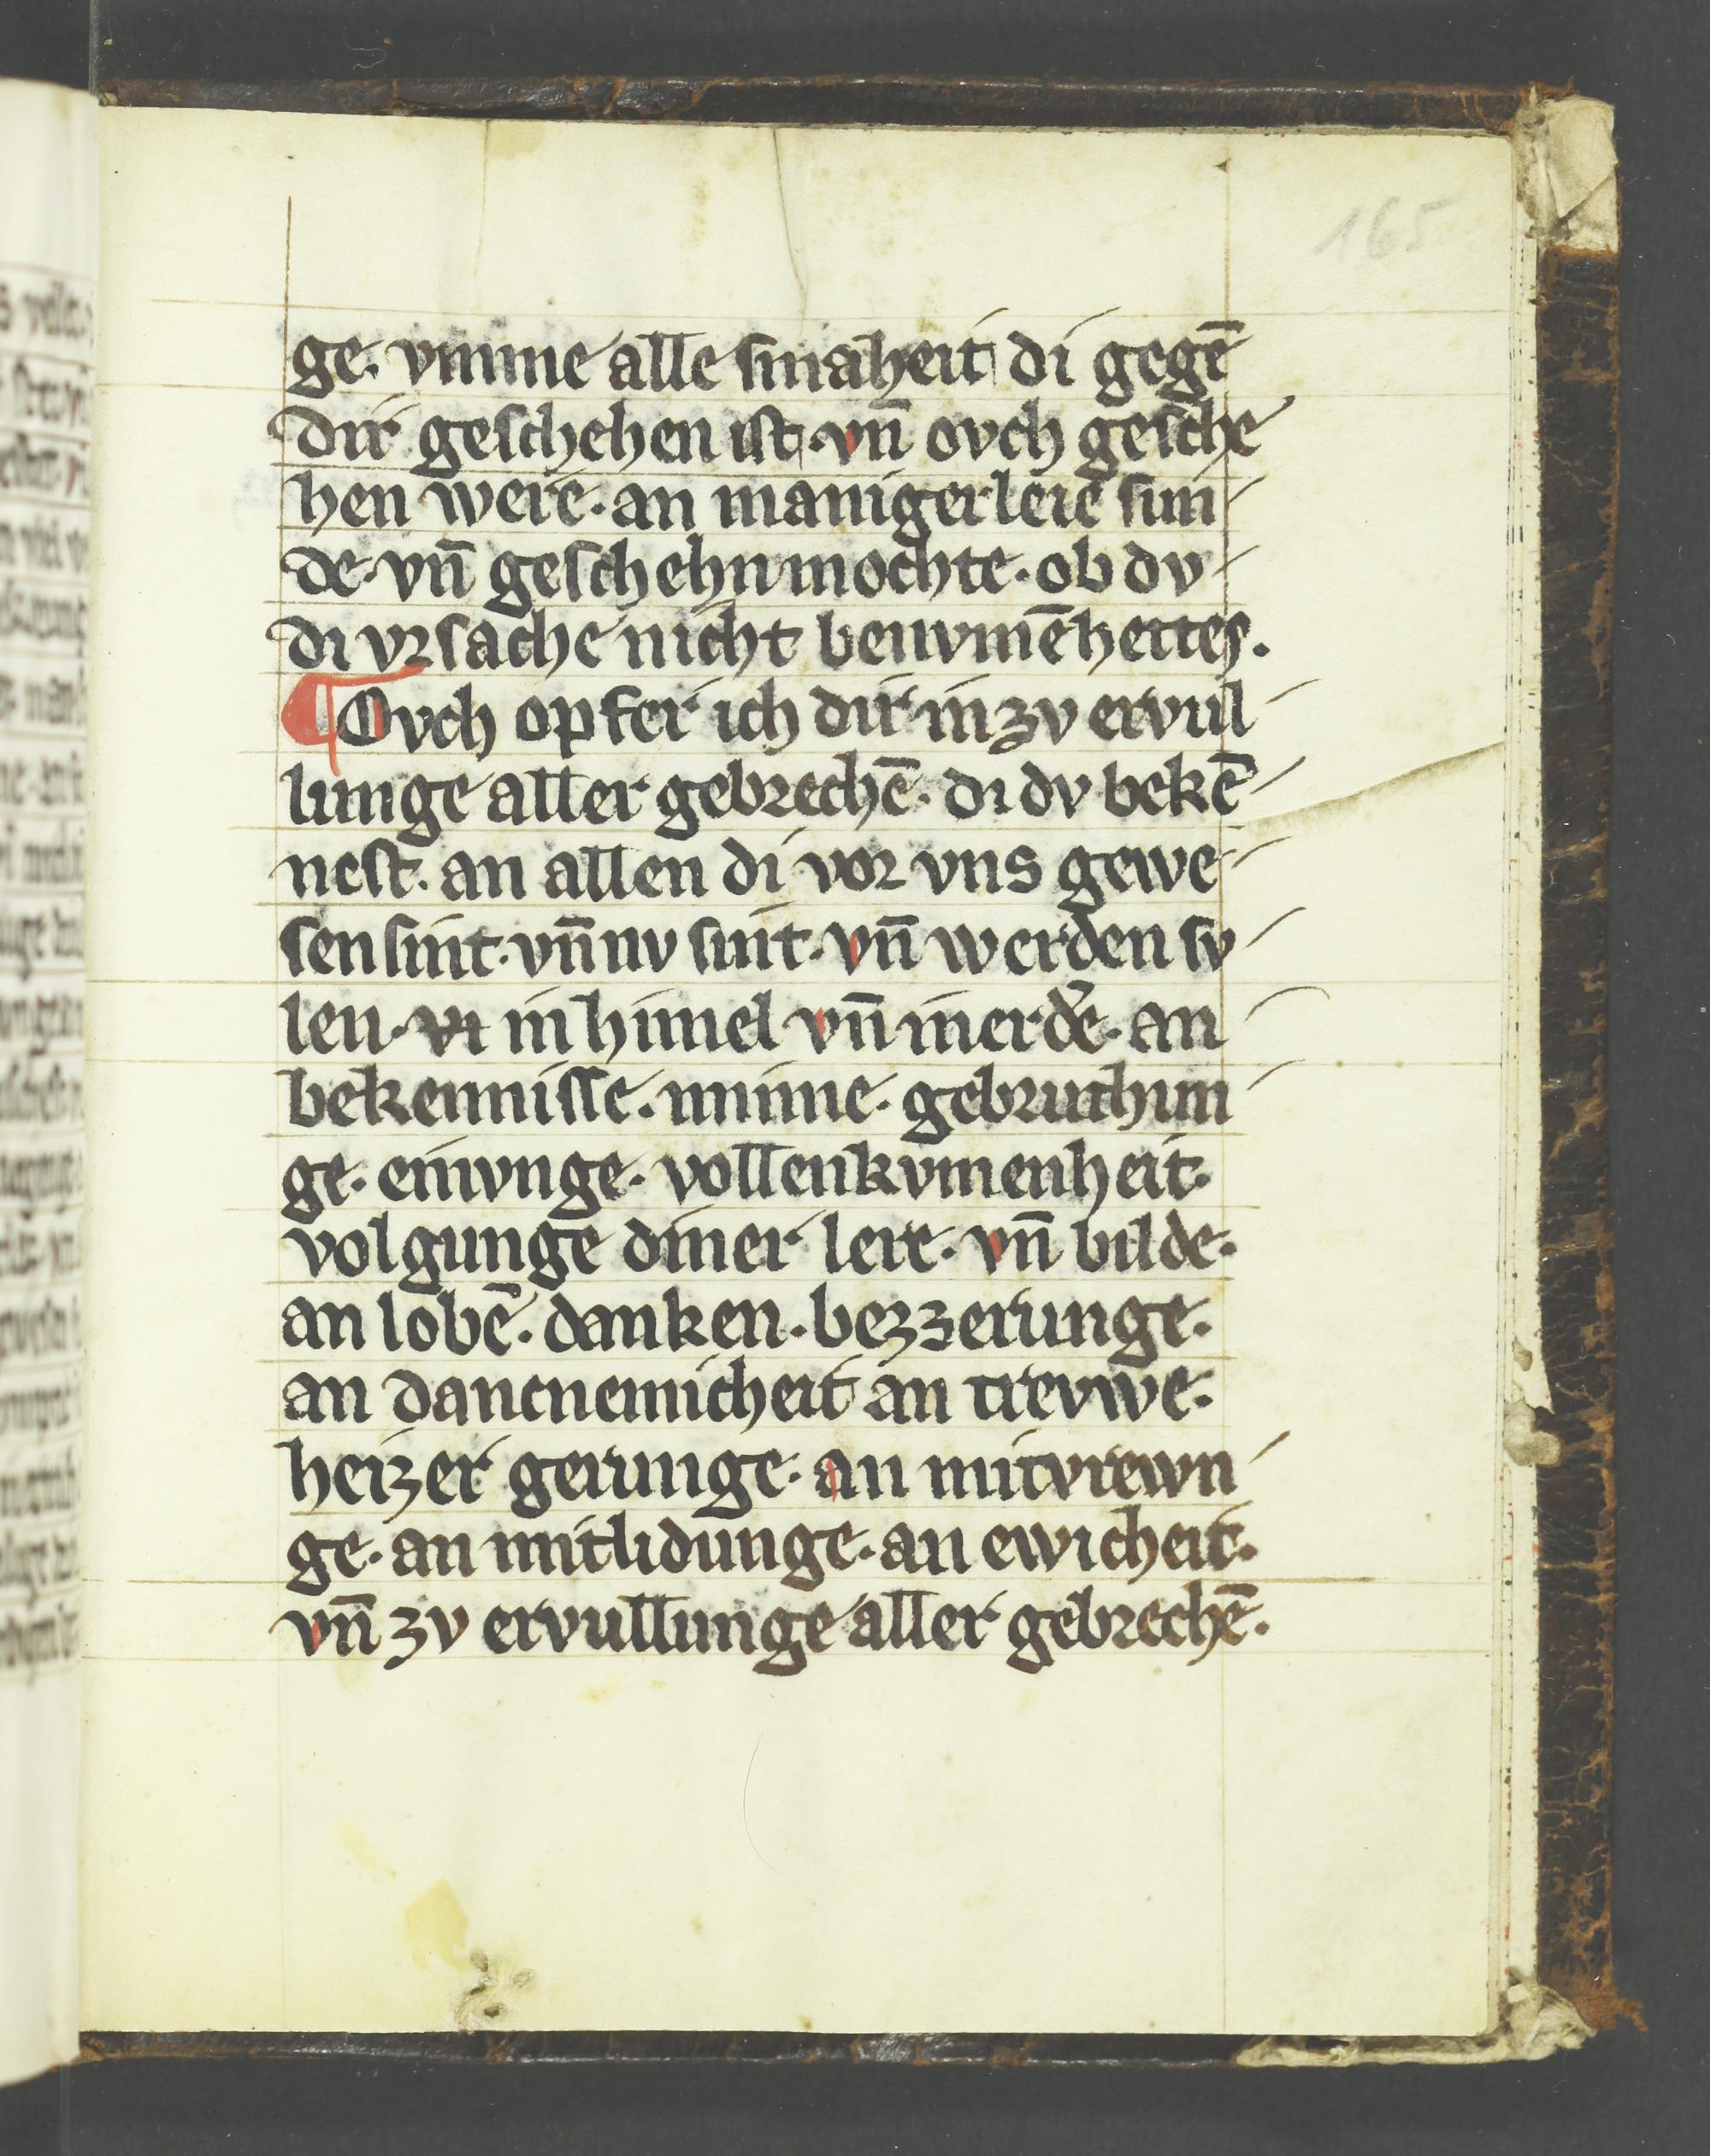 165
ge. vmme alle smaheit di gegē
dir geschehen ist. vn̄ ovch gesche
hen were. an manigerleie sun
de. vn̄ geschehn mochte. ob dv
di vrsache nicht benvmē hettes.
¶ Ovch opfer ich dir in zv ervul
lunge aller gebrechē. di dv bekē
nest. an allen di vor vns gewe
sen sint. vn̄ nv sint. vn̄ werden sv
len. in himel vn̄ in erde. an
bekennisse. minne. gebruchun
ge. einvnge. vollenkvmenheit.
volgunge diner lere. vn̄ bilde.
an lobē. danken. bezzerunge.
an dancnemicheit an trevwe.
heizer gerunge. an mitvrewn
ge. an mitlidunge. an ewicheit.
vn̄ zv ervullunge aller gebrechē.